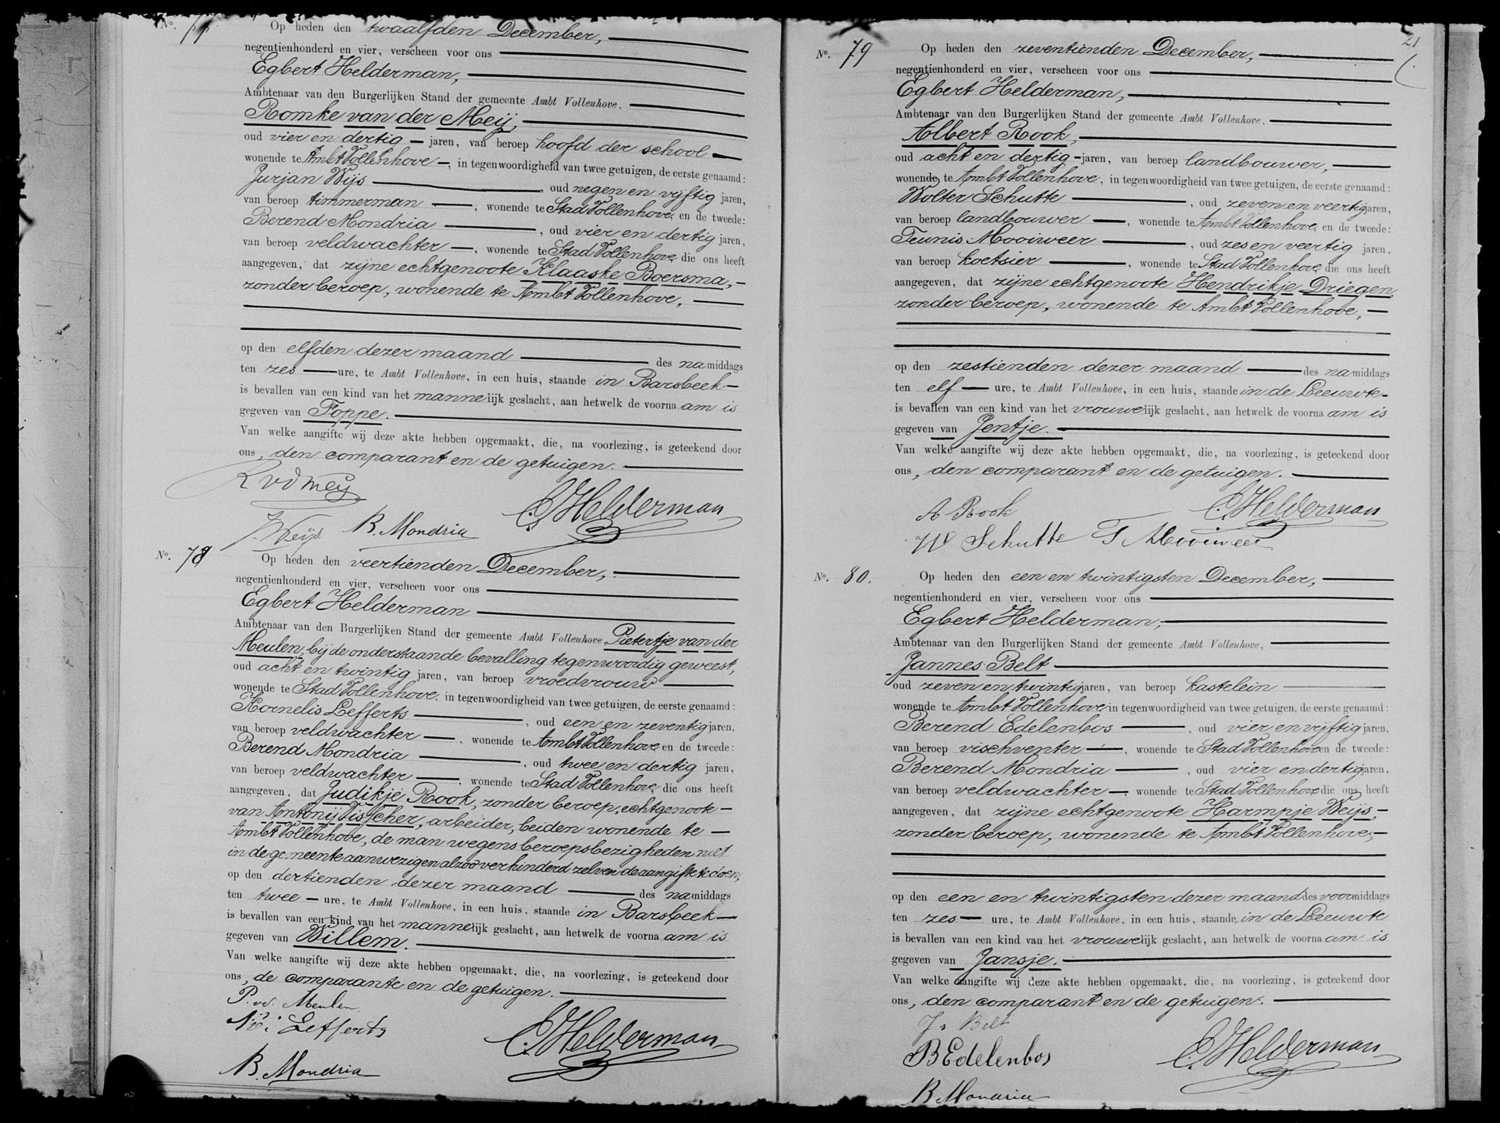 No. 77 Op heden den twaalfden December,
negentienhonderd en vier, verscheen voor ons
Egbert Helderman,
Ambtenaar van den Burgerlijken Stand der gemeente Ambt Vollenhove,
Romke van der Meij,
oud vier en dertig jaren, van beroep hoofd der school
wonende te Ambt Vollenhove, in tegenwoordigheid van twee getuigen, de eerste genaamd:
Jurjan Weijs, oud negen en vijftig jaren,
van beroep timmerman, wonende te Stad Vollenhove, en de tweede:
Berend Mondria, oud vier en dertig jaren,
van beroep veldwachter, wonende te Stad Vollenhove, die ons heeft
aangegeven, dat zijne echtgenoote Klaaske Boersma,
zonder beroep, wonende te Ambt Vollenhove,
op den elfden dezer maand des namiddags
ten zes ure, te Ambt Vollenhove, in een huis, staande in Barsbeek
is bevallen van een kind van het mannelijk geslacht, aan hetwelk de voornaam is
gegeven van Foppe.
Van welke aangifte wij deze akte hebben opgemaakt, die, na voorlezing, is geteekend door
ons, den comparant en de getuigen.
R vd Meij
J Weijs B. Mondria E. Helderman
No. 78 Op heden den veertienden December,
negentienhonderd en vier, verscheen voor ons
Egbert Helderman
Ambtenaar van den Burgerlijken Stand der gemeente Ambt Vollenhove Pietertje van der
Meulen, bij de onderstaande bevalling tegenwoordig geweest,
oud acht en twintig jaren, van beroep vroedvrouw
wonende te Stad Vollenhove, in tegenwoordigheid van twee getuigen, de eerste genaamd:
Kornelis Lefferts, oud een en zeventig jaren,
van beroep veldwachter, wonende te Ambt Vollenhove en de tweede:
Berend Mondria, oud twee en dertig jaren,
van beroep veldwachter, wonende te Stad Vollenhove, die ons heeft
aangegeven, dat Judikje Rook, zonder beroep, echtgenoote
van Antonij Visscher, arbeider, beiden wonende te
Ambt Vollenhove, de man wegens beroepsbezigheden niet
in de gemeente aanwezig en alzoo verhinderd zelven de aangifte te doen,
op den dertienden dezer maand des namiddags
ten twee ure, te Ambt Vollenhove, in een huis, staande in Barsbeek
is bevallen van een kind van het mannelijk geslacht, aan hetwelk de voornaam is
gegeven van Willem.
Van welke aangifte wij deze akte hebben opgemaakt, die, na voorlezing, is geteekend door
ons, de comparante en de getuigen.
P. vd. Meulen
Lefferts E. Helderman
B. Mondria
21
No. 79 Op heden den zeventienden December,
negentienhonderd en vier, verscheen voor ons
Egbert Helderman,
Ambtenaar van den Burgerlijken Stand der gemeente Ambt Vollenhove,
Albert Rook,
oud acht en dertig jaren, van beroep landbouwer,
wonende te Ambt Vollenhove, in tegenwoordigheid van twee getuigen, de eerste genaamd:
Wolter Schutte, oud zeven en veertig jaren,
van beroep landbouwer, wonende te Ambt Vollenhove, en de tweede:
Teunis Mooiweer, oud zes en veertig jaren,
van beroep koetsier, wonende te Stad Vollenhove, die ons heeft
aangegeven, dat zijne echtgenoote Hendrikje Driegen
zonder beroep, wonende te Ambt Vollenhove,
op den zestienden dezer maand des namiddags
ten elf ure, te Ambt Vollenhove, in een huis, staande in de Leeuwte
is bevallen van een kind van het vrouwelijk geslacht, aan hetwelk de voornaam is
gegeven van Jentje.
Van welke aangifte wij deze akte hebben opgemaakt, die, na voorlezing, is geteekend door
ons, den comparant en de getuigen.
A Rook E. Helderman
W Schutte T Mooiweer
No. 80. Op heden den een en twintigsten December,
negentienhonderd en vier, verscheen voor ons
Egbert Helderman,
Ambtenaar van den Burgerlijken Stand der gemeente Ambt Vollenhove,
Jannes Belt
oud zeven en twintig jaren, van beroep kastelein
wonende te Ambt Vollenhove in tegenwoordigheid van twee getuigen, de eerste genaamd:
Berend Edelenbos, oud vier en vijftig jaren,
van beroep vischventer, wonende te Stad Vollenhove en de tweede:
Berend Mondria, oud vier en dertig jaren,
van beroep veldwachter, wonende te Stad Vollenhove die ons heeft
aangegeven, dat zijne echtgenoote Harmpje Weijs,
zonder beroep, wonende te Ambt Vollenhove,
op den een en twintigsten dezer maand des voormiddags
ten zes ure, te Ambt Vollenhove, in een huis, staande in de Leeuwte
is bevallen van een kind van het vrouwelijk geslacht, aan hetwelk de voornaam is
gegeven van Jansje.
Van welke aangifte wij deze akte hebben opgemaakt, die, na voorlezing, is geteekend door
ons, den comparant en de getuigen.
Js Belt
B Edelenbos E. Helderman
B. Mondria